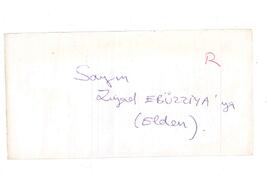 R
Sayın
Ziyad EBÜZZİYA'ya
(Elden).